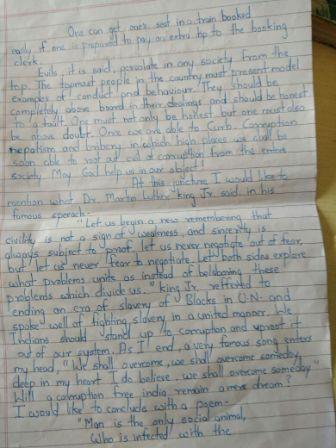 One can get one's seat in a train booked
easily if one is prepared to pay an extra tip to the booking
clerk.
Evils, it is said, percolate in any society from the
top. The topmost people in the country must present model
examples of conduct and behaviour. They should be
completely above board in their dealings and should be honest
to a fault. One must not only be honest but one must also
be above doubt. Once we are able to curb corruption
nepotism and bribery in which high places we shall be
soon able to root out evil of corruption from the entire
society. May God help us in our object!
At this juncture I would like to
mention what Dr. Martin Luther king Jr. said in his
famous speech-
"Let us begin a new remembering that
civility is not a sign of weakness and sincerity is
always subject to proof, let us never negotiate out of fear,
but let us never fear to negotiate. Let both sides explore
what problems unite us instead of belaboring these
problems which divide us." king Jr. reffered to
ending an era of slavery of Blacks in U.N. and
spoke well of fighting slavery in a united manner. We
Indians should stand up to corruption and uproot it
out of our system. As I end, a very famous song enters
my head, "We shall overcome, we shall overcome someday
deep in my heart I do believe, we shall overcome someday"
Will a corruption free india remain a mere dream?
I would like to conclude with a poem-
"Man is the only social animal,
Who is infected with the